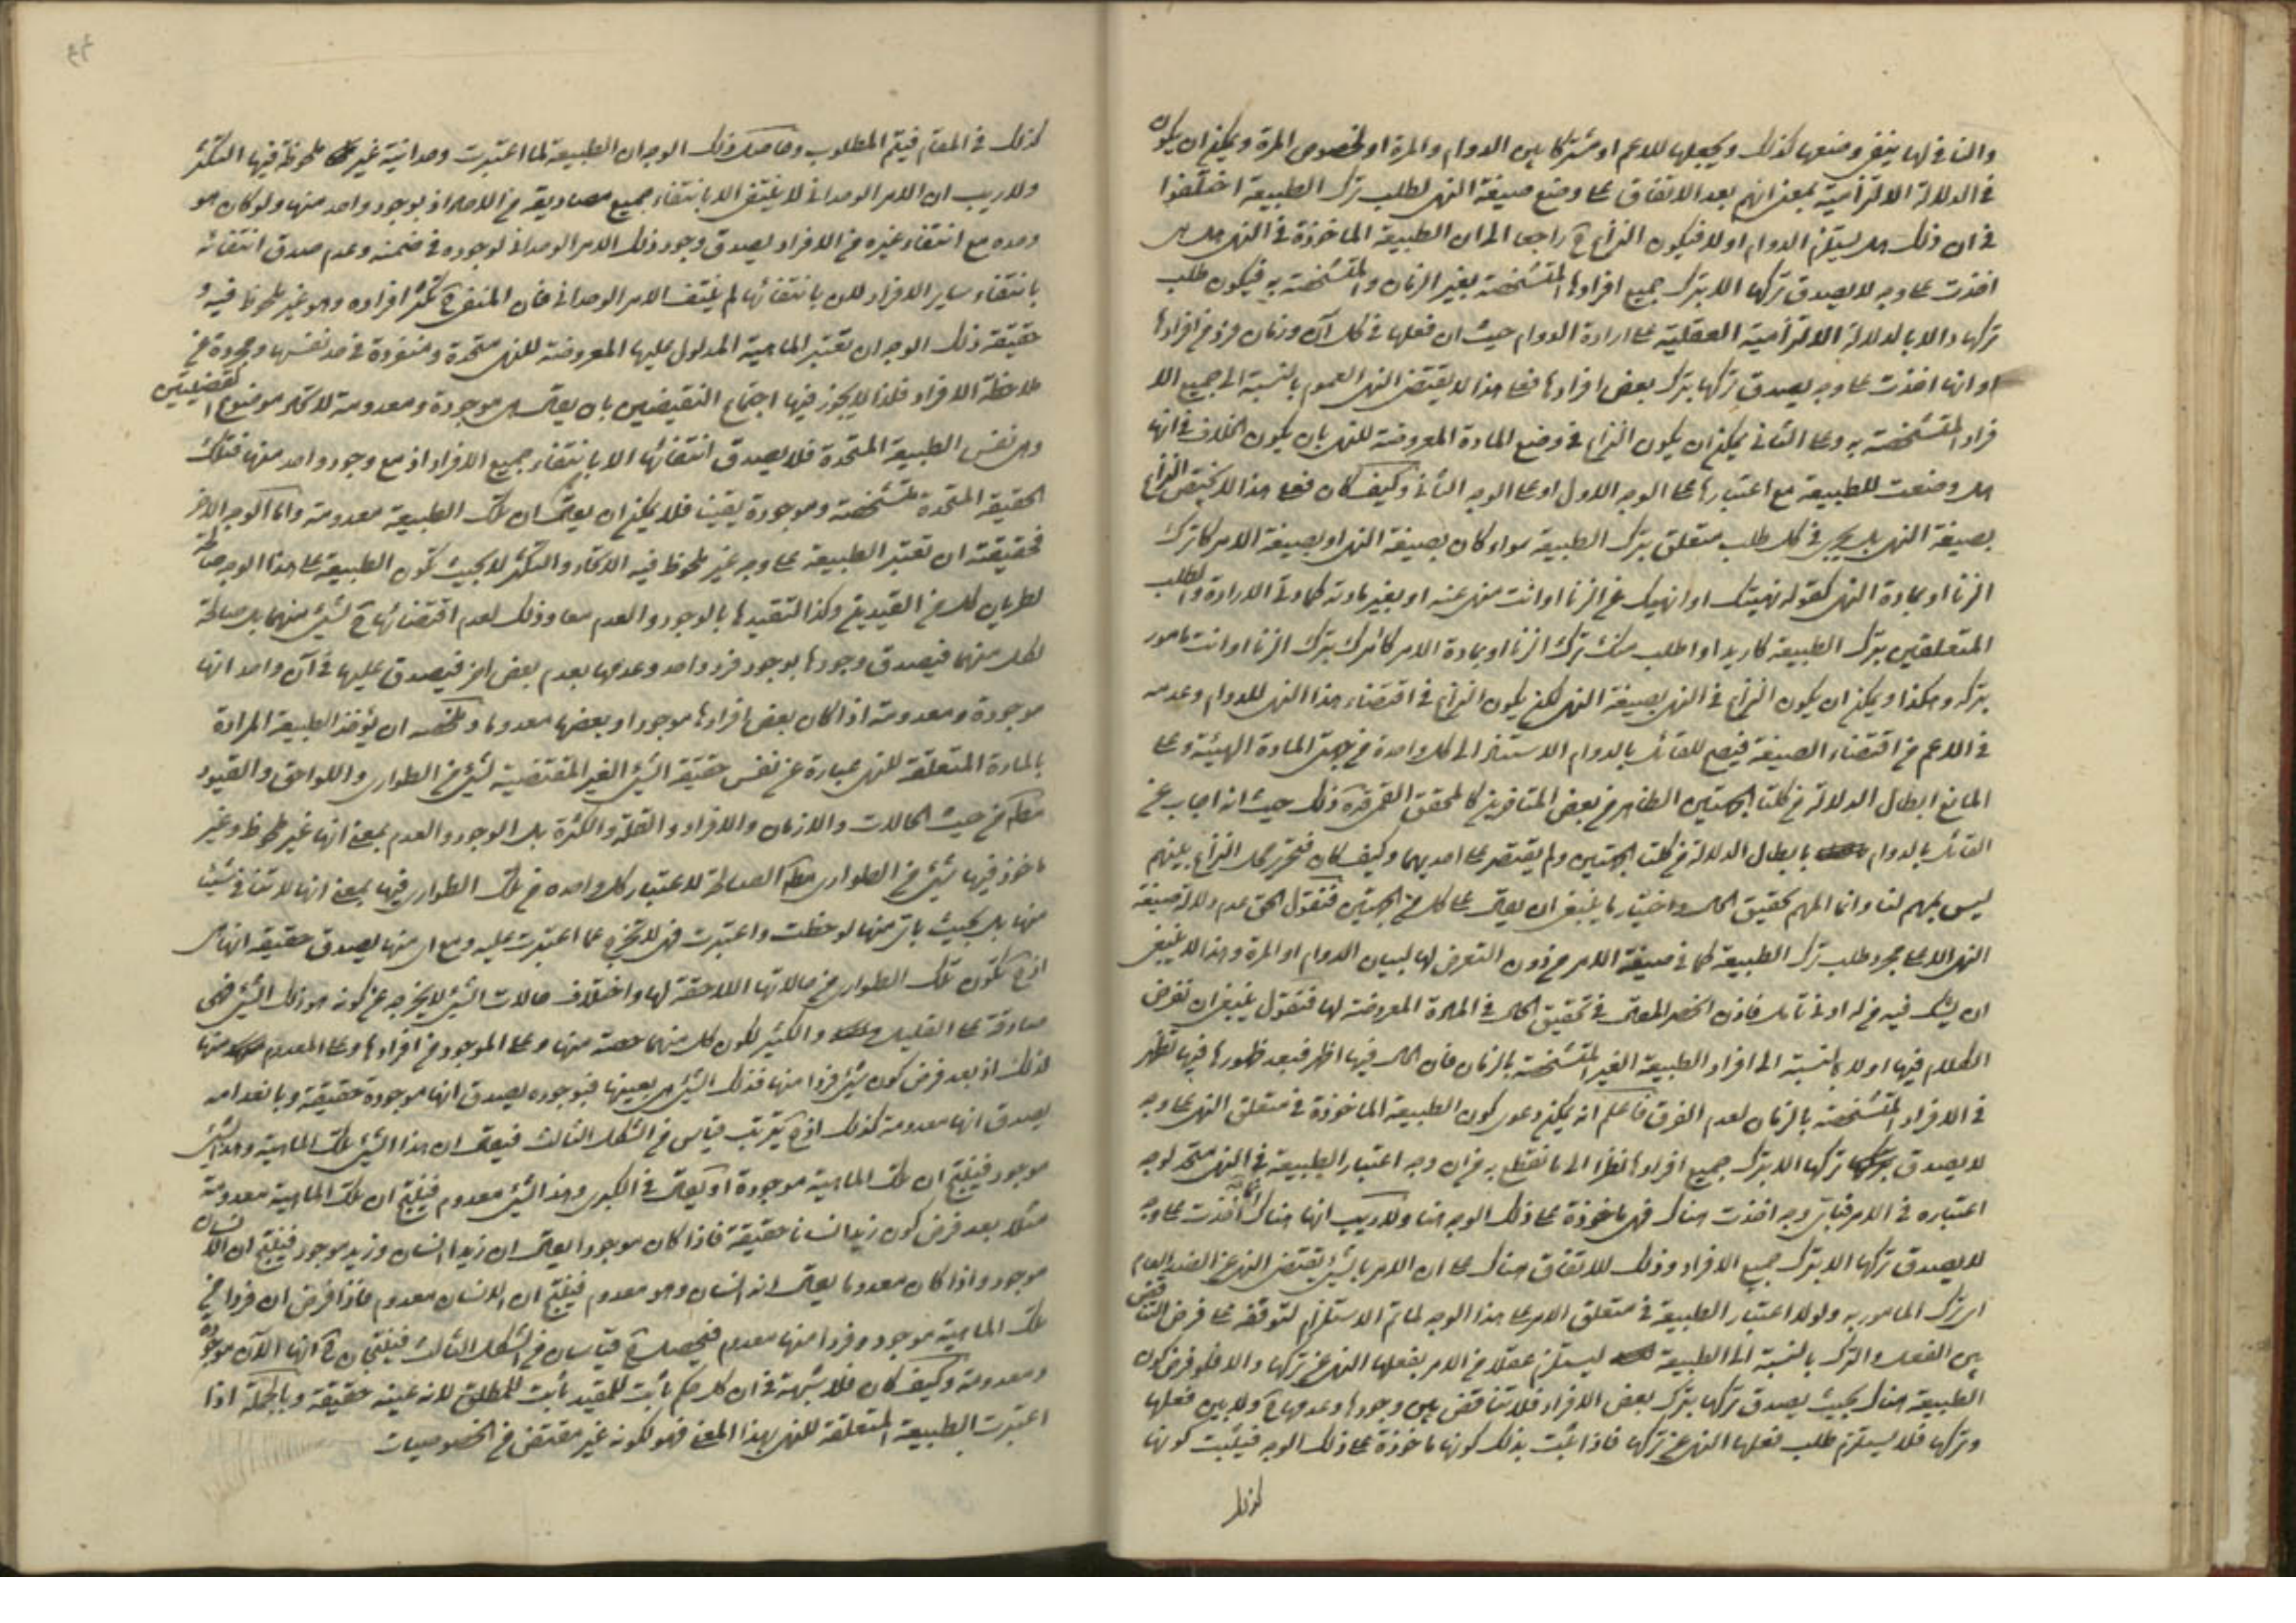 والنافي لها ينفي وضعها كذلك ويجعلها للاعم او مشتركا بين الدوام والمرة او لخصوص المرة ويمكن ان يكون
في الدلالة الالتزامية بمعنى انهم بعد الاتفاق على وضع صيغة النهى لطلب ترك الطبيعة اختلفوا
في ان ذلك هل يستلزم الدوام او لا فيكون النزاع ح راجعا الى ان الطبيعة الماخوذة في النهى هل هى
اخذت على وجه لا يصدق تركها الا بترك جميع افرادها المتشخصة بغير الزمان والمتشخصة به فيكون طلب
تركها دالا بالدلالة الالتزامية العقلية على ارادة الدوام حيث ان فعلها في كل آن وزمان فرد من افرادها
او انها اخذت على وجه يصدق تركها بترك بعض افرادها فعلى هذا لا يقتضى النهى العموم بالنسبة الى جميع الا
فراد المتشخصة به وعلى الثانى يمكن ان يكون النزاع في وضع المادة المعروضة للنهى بان يكون الخلاف في انها
هل وضعت للطبيعة مع اعتبارها على الوجه الاول او على الوجه الثانى وكيف كان فعلى هذا لا يختص النزاع
بصيغة النهى بل يجرى في كل طلب متعلق بترك الطبيعة سواء كان بصيغة النهى او بصيغة الامر كاترك
الزنا او بمادة النهى كقوله نهيتك او انهيك عن الزنا او انت منهى عنه او بغير مادته كمادتى الارادة والطلب
المتعلقين بترك الطبيعة كاريد او اطلب منك ترك الزنا او بمادة الامر كآمرك بترك الزنا او انت مامور
بتركه وهكذا ويمكن ان يكون النزاع في النهى بصيغة النهى لكن يكون النزاع في اقتضاء هذا النهى للدوام وعدمه
في الاعم من اقتضاء الصيغة فيصح للقائل بالدوام الاستناد الى كل واحدة من جهتى المادة الهيئة وعلى
المانع ابطال الدلالة من كلتا الجهتين الظاهر من بعض المتاخرين كالمحقق القمى قده ذلك حيث انه اجاب عن
القائل بالدوام بابطال الدلالة من كلتا الجهتين ولم يقتصر على احديهما وكيف كان فتحرير محل النزاع بينهم
ليس بمهم لنا وانما المهم تحقيق الحال واختيار ما ينبغى ان يقال على كل من الجهتين فنقول الحق عدم دلالة صيغة
النهى الا على مجرد طلب ترك الطبيعة كما في صيغة الامر من دون التعرض لها لبيان الدوام او المرة وهذا لا ينبغى
ان يشك فيه من له ادنى تامل فاذن انحصر المقال في تحقيق الحال في المادة المعروضة لها فنقول ينبغى ان نفرض
الكلام فيها اولا بالنسبة الى افراد الطبيعة الغير المتشخصة بالزمان فان الحال فيها اظهر فبعد ظهورها فيها تظهر
في الافراد المتشخصة بالزمان لعدم الفرق فاعلم انه يمكن دعوى كون الطبيعة الماخوذة في متعلق النهى على وجه
لا يصدق تركها الا بترك جميع افرادها نظرا الى ما نقطع به من ان وجه اعتبار الطبيعة في النهى متحد لوجه
اعتباره في الامر فباى وجه اخذت هناك فهى ماخوذة على ذلك الوجه هنا ولا ريب انها هناك اخذت على وجه
لا يصدق تركها الا بترك جميع الافراد وذلك للاتفاق هناك على ان الامر بالشئ يقتضى النهى عن الضد العام
اى ترك المامور به ولولا اعتبار الطبيعة في متعلق الامر على هذا الوجه لما تم الاستلزام لتوقفه على فرض التناقض
بين الفعل والترك بالنسبة الى الطبيعة ليستلزم عقلا من الامر بفعلها النهى عن تركها والا فلو فرض كون
الطبيعة هناك بحيث يصدق تركها بترك بعض الافراد فلا تناقض بين وجودها وعدمها ح ولا بين فعلها
وتركها فلا يستلزم طلب فعلها النهى عن تركها فاذا ثبت بذلك كونها ماخوذة على ذلك الوجه فيثبت كونها
كذلك
كذلك في المقام فيتم المطلوب وحاصل ذلك الوجه ان الطبيعة لما اعتبرت وحدانية غير ملحوظ فيها التكثر
ولا ريب ان الامر الوحدانى لا ينتفى الا بانتفاء جميع مصاديقه من الاصل اذ بوجود واحد منها ولو كان هو
وحده مع انتفاء غيره من الافراد يصدق وجود ذلك الامر الوحدانى لوجوده في ضمنه وعدم صدق انتفائه
بانتفاء ساير الافراد لان بانتفائها لم ينتف الامر الوحدانى فان المنتفى ح تكثر افراده وهو غير ملحوظ فيه و
حقيقة ذلك الوجه ان تعتبر الماهية المدلول عليها المعروضة للنهى متحدة ومنفردة في حد نفسها ومجردة عن
ملاحظة الافراد فلذا لا يجوز فيها اجتماع النقيضين بان يقال هى موجودة ومعدومة لاتحاد موضوع القضيتين
وهى نفس الطبيعة المتحدة فلا يصدق انتفائها الا بانتفاء جميع الافراد اذ مع وجود واحد منها فتلك
الحقيقة المتحدة متشخصة وموجودة يقينا فلا يمكن ان يقال ان تلك الطبيعة معدومة واما الوجه الاخر
فحقيقته ان تعتبر الطبيعة على وجه غير ملحوظ فيه الاتحاد والتكثر لا بحيث تكون الطبيعة على هذا الوجه صالحة
لطريان كل من القيدين وكذا لتقيدها بالوجود والعدم معا وذلك لعدم اقتضائها ح لشئ منهما بل صالحة
لكل منهما فيصدق وجودها بوجود فرد واحد وعدمها بعدم بعض اخر فيصدق عليها في آن واحد انها
موجودة ومعدومة اذا كان بعض افرادها موجودا وبعضها معدوما وملخصه ان يؤخذ الطبيعة المرادة
بالمادة المتعلقة للنهى عبارة عن نفس حقيقة الشئ الغير المقتضية لشئ من الطوارى واللواحق والقيود
مطلقا من حيث الحالات والازمان والافراد والقلة والكثرة بل الوجود والعدم بمعنى انها غير ملحوظ وغير
ماخوذ فيها شئ من الطوارى مطلقا الصالحة لاعتبار كل واحدة من تلك الطوارى فيها بمعنى انها لا تنافى شيئا
منها بل بحيث باى منها لوحظت واعتبرت فهى لا تخرج عما اعتبرت عليه ومع اى منها يصدق حقيقة انها هى
اذ ح تكون تلك الطوارى من حالاتها اللاحقة لها واختلاف حالات الشئ لا يخرجه عن كونه هو ذلك الشئ فهى
صادقة على القليل والكثير لكون كل منهما حصة منها وعلى الموجود من افرادها وعلى المعدوم منها
كذلك اذ بعد فرض كون شئ فردا منها فذلك الشئ هى بعينها فبوجوده يصدق انها موجودة حقيقة وبانعدامه
يصدق انها معدومة كذلك اذ ح يترتب قياس من الشكل الثالث فيقال ان هذا الشئ تلك الماهية وهذا الشئ
موجود فينتج ان تلك الماهية موجودة او يقال في الكبرى وهذا الشئ معدوم فينتج ان تلك الماهية معدومة
مثلا بعد فرض كون زيد انسانا حقيقة فاذا كان موجودا يقال ان زيدا انسان وزيد موجود فينتج ان الانسان
موجود واذا كان معدوما يقال انه انسان وهو معدوم فينتج ان الانسان معدوم فاذا فرض ان فردا من
تلك الماهية موجود وفردا منها معدوم فيحصل ح قياسان من الشكل الثالث فينتجان ح انها الآن موجودة
ومعدومة وكيف كان فلا شبهة في ان كل حكم ثابت للمقيد ثابت للمطلق لانه عينه حقيقة وبالجملة اذا
اعتبرت الطبيعة المتعلقة للنهى بهذا المعنى فهو لكونه غير مقتض من الخصوصيات